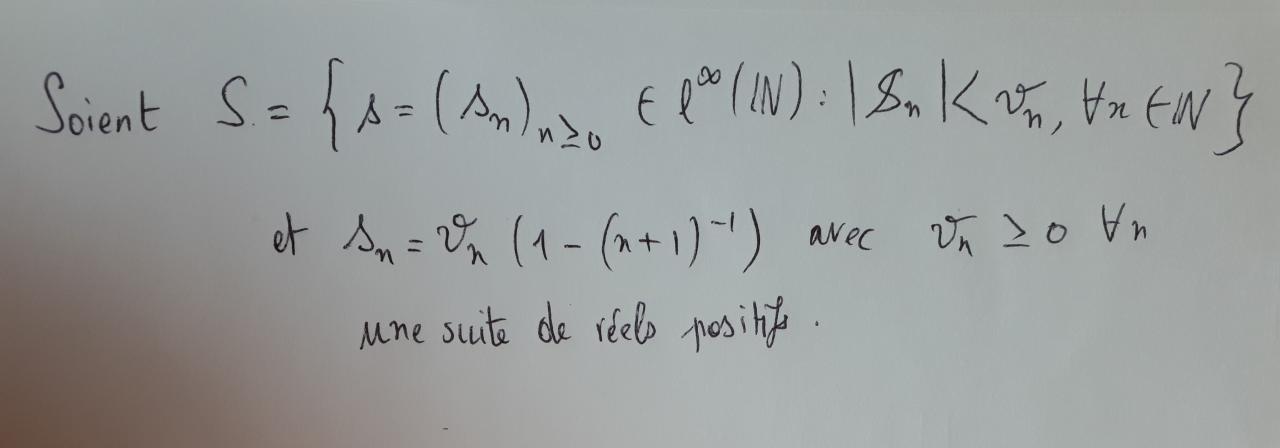 Soient S = { s = (s_n)_{n≥0} ∈ l^∞(ℕ) : |s_n| < v_n, ∀n ∈ ℕ }
et s_n = v_n (1 - (n+1)^{-1}) avec v_n ≥ 0 ∀n
une suite de réels positifs.